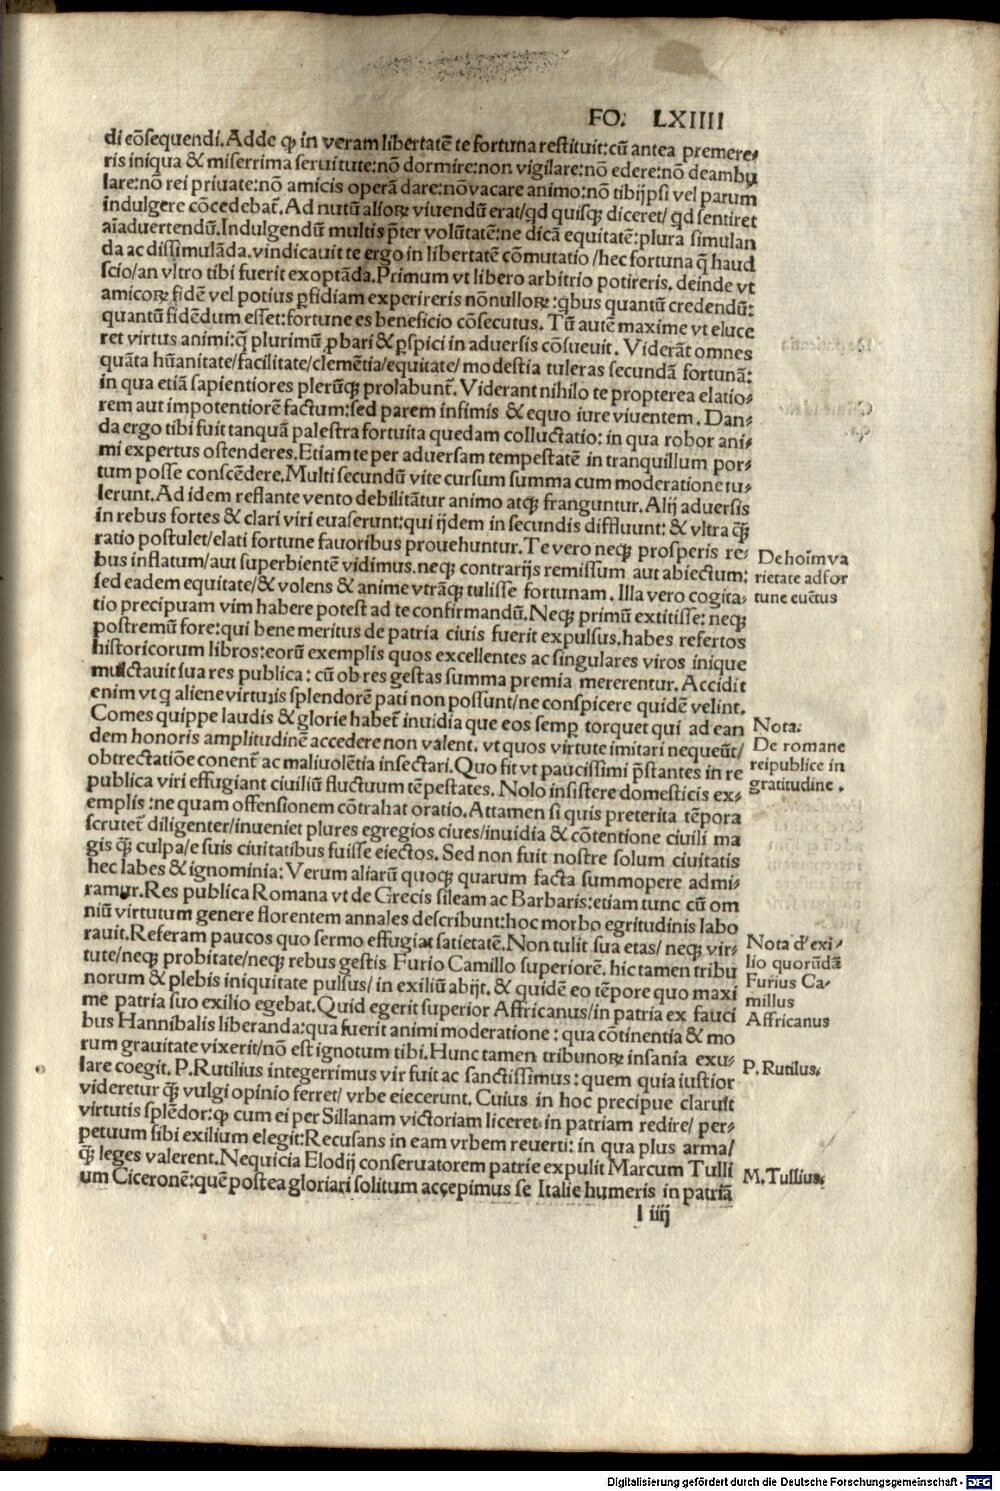 FO. LXIIII
di cōsequendi. Adde ꝙ in veram libertatē te fortuna restituit: cū antea premere⸗
ris iniqua & miserrima seruitute: nō dormire: non vigilare: nō edere: nō deambu
lare: nō rei priuate: nō amicis operā dare: nō vacare animo: nō tibijpsi vel parum
indulgere cōcedebat̄. Ad nutū alioꝝ viuendū erat/ qd quisqꝫ diceret/ qd sentiret
aīaduertendū. Indulgendū multis p̄ter volūtatē: ne dicā equitatē: plura simulan
da ac dissimulāda. vindicauit te ergo in libertatē cōmutatio / hec fortuna q̄ haud
scio/ an vltro tibi fuerit exoptāda. Primum vt libero arbitrio potireris. deinde vt
amicoꝝ fidē vel potius ꝑfidiam experireris nōnulloꝝ: qbus quantū credendū:
quantū fidēdum esset: fortune es beneficio cōsecutus. Tū autē maxime vt eluce
ret virtus animi: q̄ plurimū ꝓbari & ꝑspici in aduersis cōsueuit. Viderāt omnes
quāta hūanitate/ facilitate/ clemētia/ equitate/ modestia tuleras secundā fortunā:
in qua etiā sapientiores plerūqꝫ prolabunt̄. Viderant nihilo te propterea elatio⸗
rem aut impotentiorē factum: sed parem infimis & equo iure viuentem. Dan⸗
da ergo tibi fuit tanquā palestra fortuita quedam colluctatio: in qua robor ani⸗
mi expertus ostenderes. Etiam te per aduersam tempestatē in tranquillum por⸗
tum posse conscēdere. Multi secundū vite cursum summa cum moderatione tu⸗
lerunt. Ad idem reflante vento debilitātur animo atqꝫ franguntur. Alij aduersis
in rebus fortes & clari viri euaserunt: qui ijdem in secundis diffluunt: & vltra q̄ꝫ
ratio postulet/ elati fortune fauoribus prouehuntur. Te vero neqꝫ prosperis re⸗
bus inflatum/ aut superbientē vidimus. neqꝫ contrarijs remissum aut abiectum:
sed eadem equitate/ & volens & anime vtrāqꝫ tulisse fortunam. Illa vero cogita⸗
tio precipuam vim habere potest ad te confirmandū. Neqꝫ primū extitisse: neqꝫ
postremū fore: qui bene meritus de patria ciuis fuerit expulsus. habes refertos
historicorum libros: eorū exemplis quos excellentes ac singulares viros inique
mulctauit sua res publica: cū ob res gestas summa premia mererentur. Accidit
enim vt q aliene virtutis splendorē pati non possunt/ ne conspicere quidē velint.
Comes quippe laudis & glorie habet̄ inuidia que eos semꝑ torquet qui ad ean
dem honoris amplitudinē accedere non valent. vt quos virtute imitari nequeūt/
obtrectatiōe conent̄ ac maliuolētia insectari. Quo fit vt paucissimi p̄stantes in re
publica viri effugiant ciuiliū fluctuum tēpestates. Nolo insistere domesticis ex⸗
emplis: ne quam offensionem cōtrahat oratio. Attamen si quis preterita tēpora
scrutet̄ diligenter/ inueniet plures egregios ciues/ inuidia & cōtentione ciuili ma
gis q̄ꝫ culpa/ e suis ciuitatibus fuisse eiectos. Sed non fuit nostre solum ciuitatis
hec labes & ignominia: Verum aliarū quoqꝫ quarum facta summopere admi⸗
ramur. Res publica Romana vt de Grecis sileam ac Barbaris: etiam tunc cū om
niū virtutum genere florentem annales describunt: hoc morbo egritudinis labo
rauit. Referam paucos quo sermo effugiat satietatē. Non tulit sua etas/ neqꝫ vir⸗
tute/ neqꝫ probitate/ neqꝫ rebus gestis Furio Camillo superiorē. hic tamen tribu
norum & plebis iniquitate pulsus/ in exiliū abijt. & quidē eo tēpore quo maxi
me patria suo exilio egebat. Quid egerit superior Affricanus/ in patria ex fauci
bus Hannibalis liberanda: qua fuerit animi moderatione: qua cōtinentia & mo
rum grauitate vixerit/ nō est ignotum tibi. Hunc tamen tribunoꝝ insania exu⸗
lare coegit. P. Rutilius integerrimus vir fuit ac sanctissimus: quem quia iustior
videretur q̄ꝫ vulgi opinio ferret/ vrbe eiecerunt. Cuius in hoc precipue claruit
virtutis splēdor: ꝙ cum ei per Sillanam victoriam liceret in patriam redire/ per⸗
petuum sibi exilium elegit: Recusans in eam vrbem reuerti: in qua plus arma/
q̄ꝫ leges valerent. Nequicia Elodij conseruatorem patrie expulit Marcum Tulli
um Ciceronē: quē postea gloriari solitum accepimus se Italie humeris in patriā
l iiij
De hoīm va
rietate ad for
tune euētus
Nota:
De romane
reipublice in
gratitudine.
Nota d' exi⸗
lio quorūdā
Furius Ca⸗
millus
Affricanus
P. Rutilus.
M. Tullius.
Digitalisierung gefördert durch die Deutsche Forschungsgemeinschaft - DFG